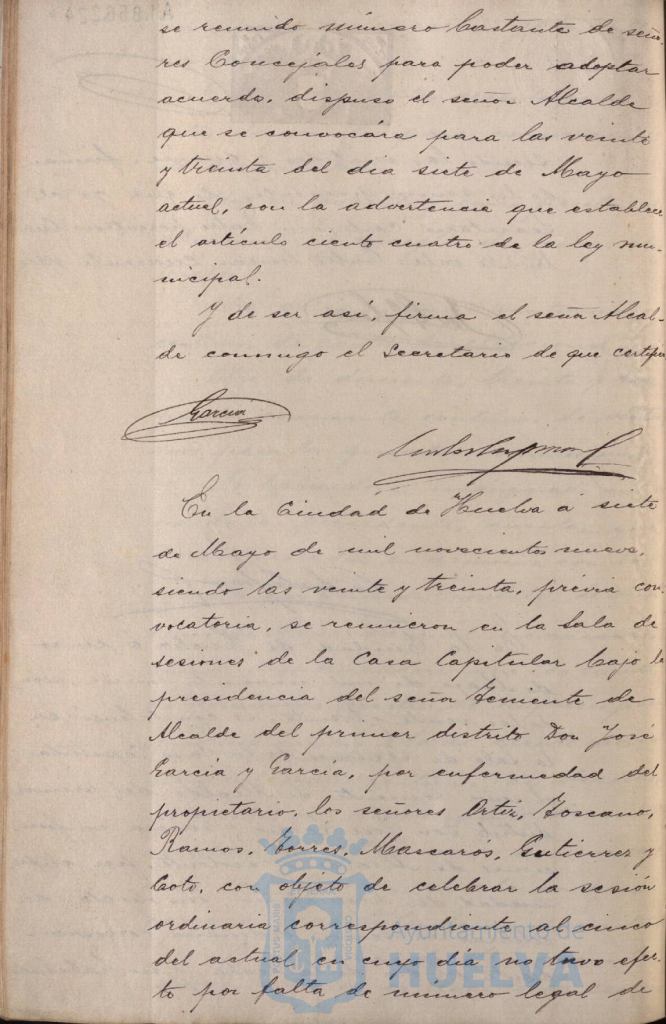 se reunido número bastante de seño-
res Concejales para poder adoptar
acuerdo, dispuso el señor Alcalde
que se convocára para las veinte
y treinta del dia siete de Mayo
actual, con la advertencia que establece
el artículo ciento cuatro de la ley mu-
nicipal.
Y de ser así, firma el señor Alcal-
de conmigo el Secretario de que certifico
Garcia
En la Ciudad de Huelva á siete
de Mayo de mil novecientos nueve,
siendo las veinte y treinta, prévia con-
vocatoria, se reunieron en la Sala de
sesiones de la Casa Capitular bajo la
presidencia del señor Teniente de
Alcalde del primer distrito Don José
García y García, por enfermedad del
propietario, los señores Ortiz, Toscano,
Ramos, Torres, Mascarós, Gutierrez y
Coto, con objeto de celebrar la sesión
ordinaria correspondiente al cinco
del actual en cuyo día no tuvo efec-
to por falta de número legal de
Ayuntamiento de
HUELVA